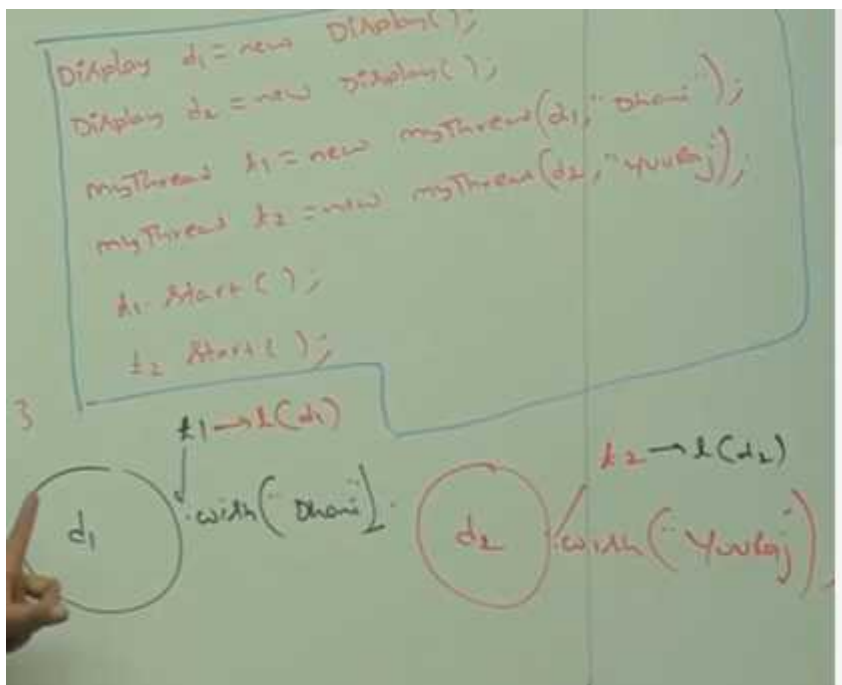 Display d1 = new Display();
Display d2 = new Display();
myThread t1 = new myThread(d1, "Dhoni");
myThread t2 = new myThread(d2, "Yuvraj");
t1. Start();
t2 Start();
}
t1→l(d1)
t2→l(d2)
d1 .wish("Dhoni").
d2 .wish("Yuvraj");